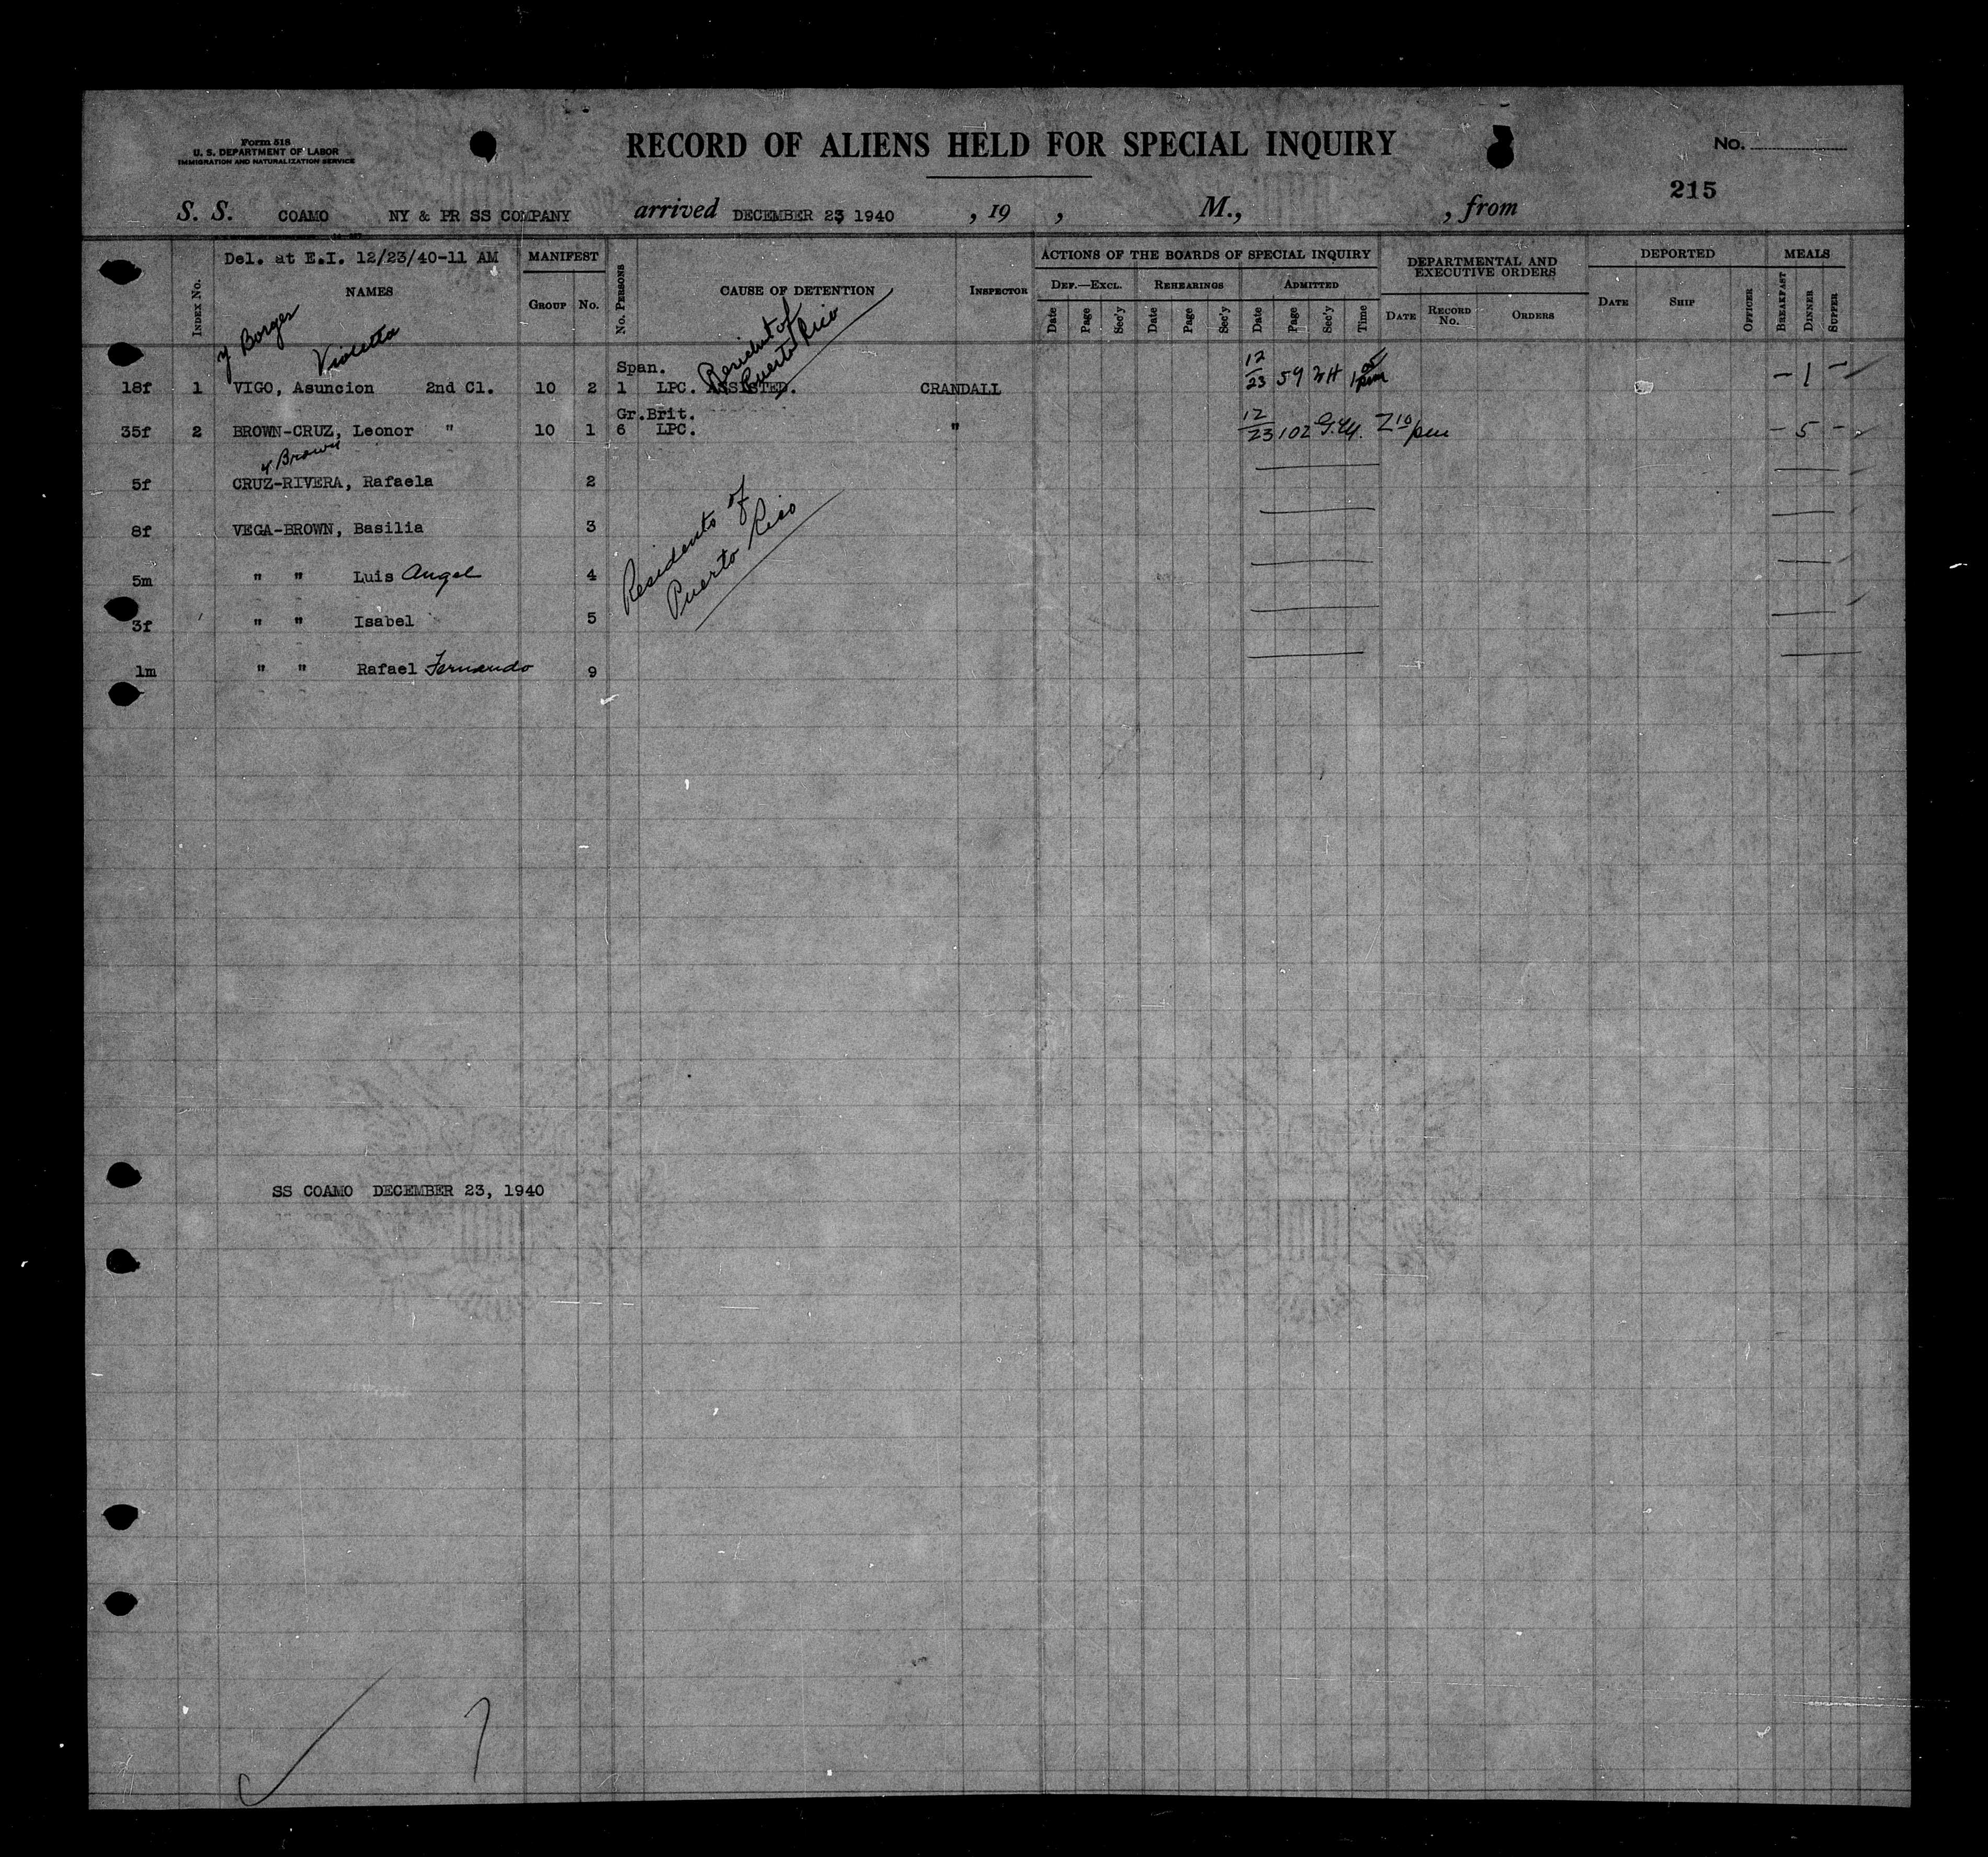 Form 518
U. S. DEPARTMENT OF LABOR
IMMIGRATION AND NATURALIZATION SERVICE
RECORD OF ALIENS HELD FOR SPECIAL INQUIRY
No.
215
S. S. COAMO NY & PR SS COMPANY arrived DECEMBER 23 1940 , 19 , M., , from
Del. at E.I. 12/23/40-11 AM MANIFEST ACTIONS OF THE BOARDS OF SPECIAL INQUIRY DEPARTMENTAL AND EXECUTIVE ORDERS DEPORTED MEALS
Index No. NAMES Group No. No. Persons CAUSE OF DETENTION Inspector Def.—Excl. Rehearings Admitted
Date Page Sec'y Date Page Sec'y Date Page Sec'y Time Date Record No. Orders Date Ship Officer Breakfast Dinner Supper
y Borges Violetta Resident of Puerto Rico
Span.
18f 1 VIGO, Asuncion 2nd Cl. 10 2 1 LPC. ASSISTED. CRANDALL 12/23 59 1 00 pm – 1 –
Gr.Brit.
35f 2 BROWN-CRUZ, Leonor " 10 1 6 LPC. " 12/23 102 2 10 pm – 5 –
y Brown
5f CRUZ-RIVERA, Rafaela 2
8f VEGA-BROWN, Basilia 3
5m " " Luis Angel 4
3f " " Isabel 5
1m " " Rafael Fernando 9
Residents of
Puerto Rico
SS COAMO DECEMBER 23, 1940
7